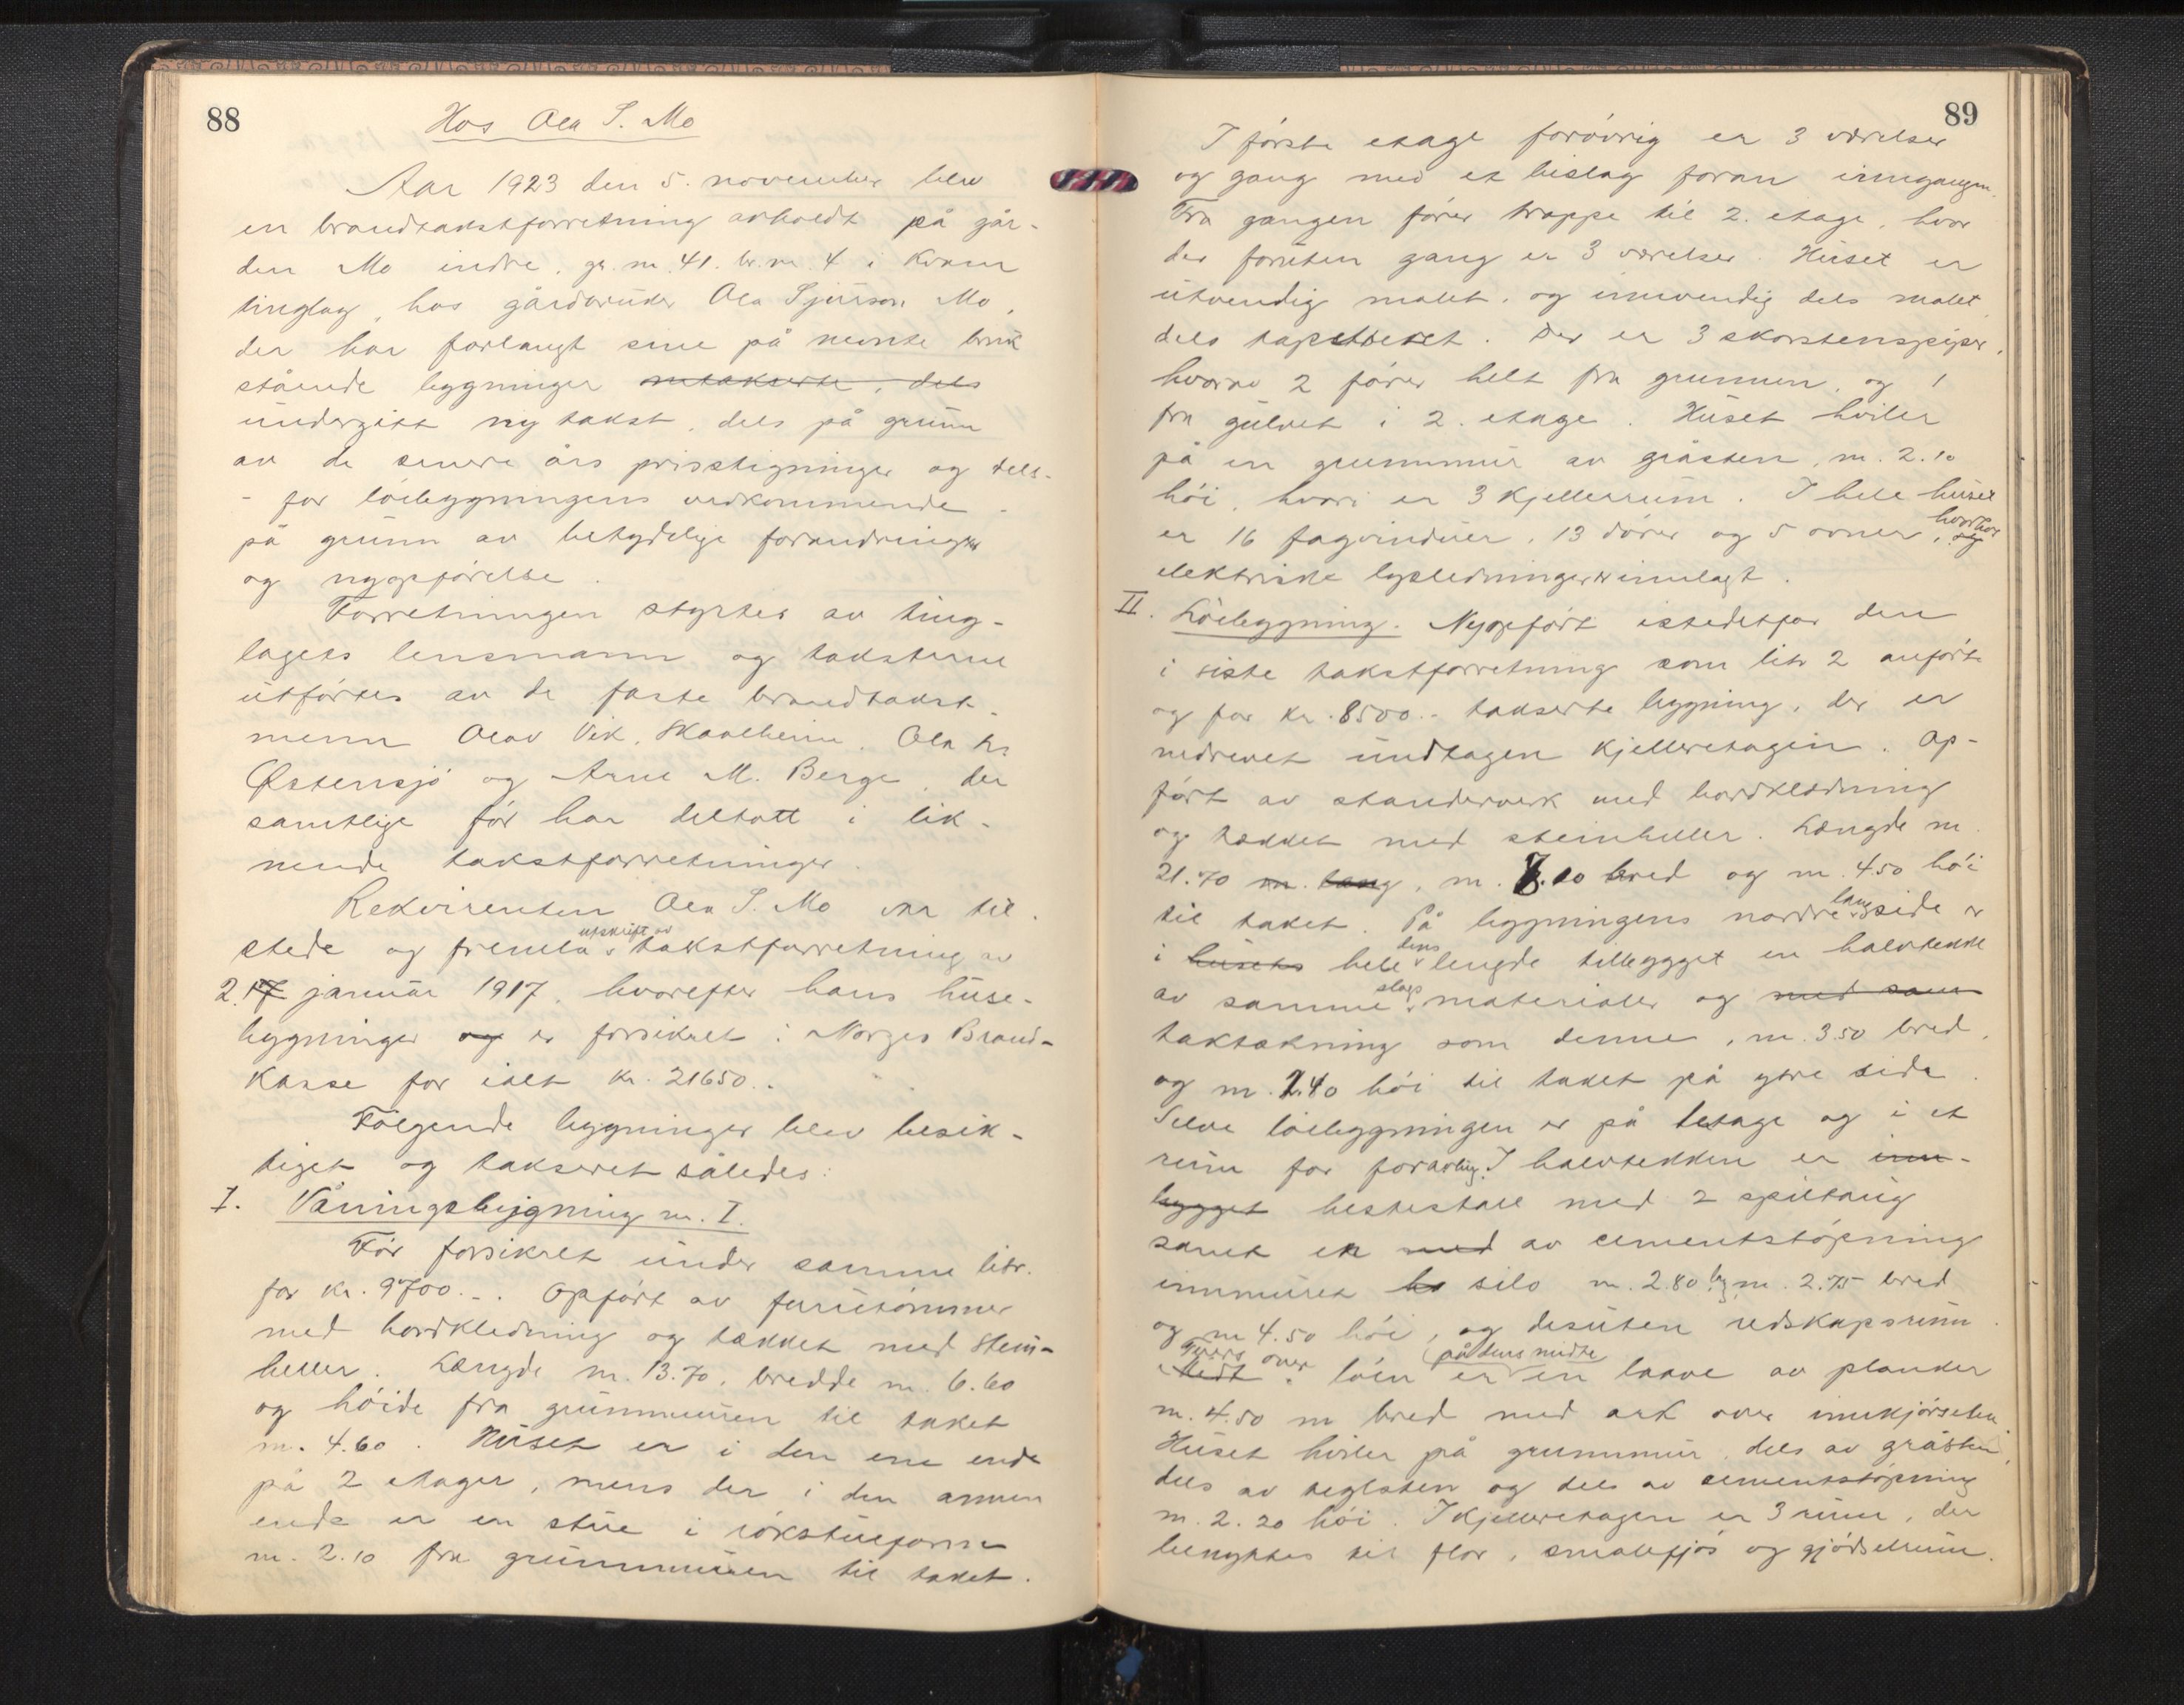 88
Hos Ola S. Mo
Aar 1923 den 5. november blev
en brandtakstforretning avholdt på går-
den Mo indre, gr. nr. 41. br. nr. 4 i Kvam
tinglag, hos gårdbruker Ola Sjursson Mo,
der har forlangt sine på nevnte bruk
stående bygninger omtakserte, dels
undergitt ny takst, dels på grunn
av de senere års prisstigninger og dels-
- for löebygningens vedkommende -
på grunn av betydelige forandringer
og nyopförelse.
Forretningen styrtes av ting-
lagets lensmann og taksterne
utförtes av de faste brandtakst-
menn Olav Vik, Skaalheim, Ola
Østensjö og Arne M. Berge, der
samtlige för har deltatt i lik-
nende takstforretninger.
Rekvirenten Ola S. Mo var til
stede og fremla utskrift av takstforretning av
2. januar 1917, hvorefter hans huse-
bygninger og er forsikret i Norges Brand-
kasse for ialt kr. 21650.-
Fölgende bygninger blev besik-
tiget og taksert således:
I. Våningsbygning nr. I.
För forsikret under samme litr.
for kr. 9700.-. Opfört av furutömmer
med bordkledning og tækket med stein-
heller. Længde m. 13.70, bredde m. 6.60
og höide fra grunnmuren til taket
m. 4.60. Huset er i den ene ende
på 2 etager, mens der i den annen
ende er en stue i rökstueform
m. 2.10 fra grunnmuren til taket.
89
I förste etage forövrig er 3 værelser
og gang med et bislag foran inngangen.
Fra gangen förer trappe til 2. etage, hvor
der foruten gang er 3 værelser. Huset er
utvendig malet, og innvendig dels malet,
dels tapetseret. Der er 3 skorstenspiper,
hvorav 2 förer helt fra grunnen, og 1
fra gulvet i 2. etage. Huset hviler
på en grunnmur av gråsten, m. 2.10
höi, hvori er 3 kjellerrum. I hele huset
er 16 fagvinduer, 13 dörer og 5 ovner, hvorhos
elektriske lysledninger er innlagt.
II. Löebygning. Nyopfört istedetfor den
i siste takstforretning som litr 2 anförte
og for kr. 8500.- takserte bygning, der er
nedrevet undtagen kjelleretagen. Op-
fört av standerverk med bordklædning
og tækket med steinheller. Længde m.
21.70 m. lang, m. 7.10 bred og m. 4.50 höi
til taket. På bygningens nordre langside er
i husets hele dens lengde tilbygget en halvtekke
av samme slags materialer og med sam
taktækning som denne, m. 3.50 bred,
og m. 2.40 höi til taket på ytre side.
Selve löebygningen er på 1 etage og i et
rum for foravling. I halvtekken er inn-
bygget hestestall med 2 spiltaug
samt en med av cementstöpning
innmuret silo m. 2.80 lg, m. 2.75 bred
og m 4.50 höi, og desuten redskapsrum.
Tvers over löen er på dens midte en laave av planker
m. 4.50 m bred med ark over innkjörselen.
Huset hviler på grunnmur, dels av gråsten,
dels av teglsten og dels av cementstöpning
m. 2.20 höi. I kjelleretagen er 3 rum, der
benyttes til flor, smalefjös og gjödselrum.